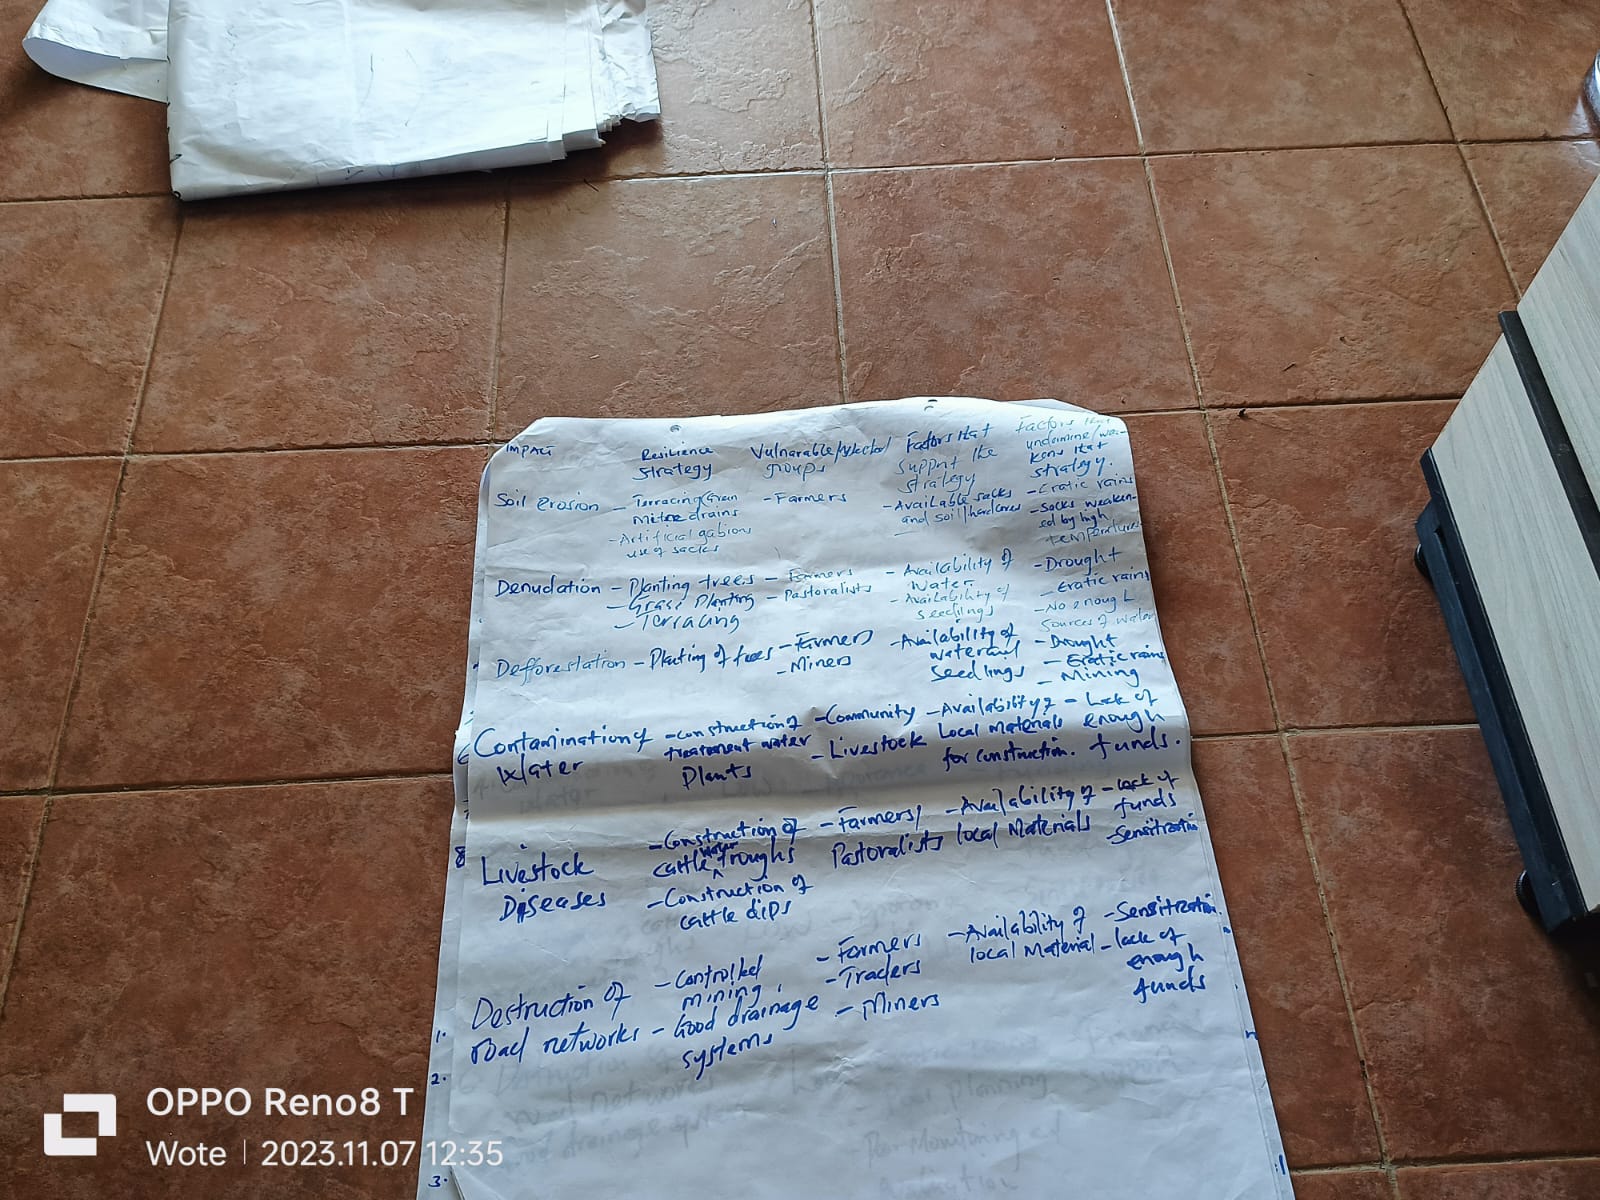 IMPACT
Resilience
strategy
Vulnarable/
groups
Factors that
support the
strategy
Factors that
undermine/wea-
kens that
strategy.
Soil erosion
- Terracing/
drains
- Artificial gabions
use of sacks
- Farmers
- Available sacks
and soil/
- Eratic rains
- Sacks weaken-
ed by high
temperatures
Denudation
- Planting trees
- Grass Planting
- Terracing
- Farmers
- Pastoralists
- Availability of
water
- Availability of
seedlings
- Drought
- Eratic rains
- No enough
sources of water
Defforestation
- Planting of trees
- Farmers
- Miners
- Availability of
water and
seedlings
- Drought
- Eratic rains
- Mining
Contamination of
Water
- construction of
treatment water
Plants
- Community
- Livestock
- Availability of
Local Materials
for construction.
- Lack of
enough
funds.
Livestock
Diseases
- Construction of
cattle water troughs
- Construction of
cattle dips
- Farmers/
Pastoralists
- Availability of
local Materials
- Lack of
funds
- Sensitization
Destruction of
road networks
- Controlled
mining.
- Good drainage
systems
- Farmers
- Traders
- Miners
- Availability of
local Material
- Sensitization.
- lack of
enough
funds
8
1.
2.
3.
OPPO Reno8 T
Wote | 2023.11.07 12:35